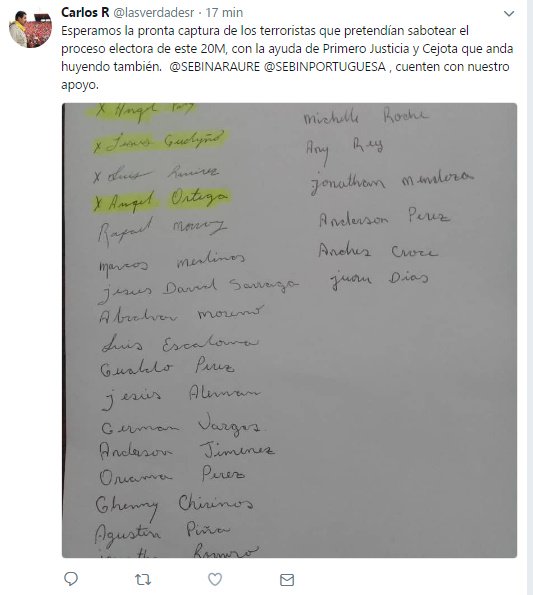 Carlos R @lasverdadesr · 17 min
Esperamos la pronta captura de los terroristas que pretendían sabotear el
proceso electora de este 20M, con la ayuda de Primero Justicia y Cejota que anda
huyendo también. @SEBINARAURE @SEBINPORTUGUESA , cuenten con nuestro
apoyo.
X Angel
X Jesus
X Luis Ramirez
X Angel Ortega
Rafael
Marcos
jesus David
Abrahan Moreno
Luis Escalona
Gualdo Perez
jesus Aleman
German Vargas
Anderson Jimenez
Oriana Perez
Ghenny Chirinos
Agustin Piña
Romero
Michelle Roche
Any Rey
jonathan Mendoza
Anderson Perez
Andres Croce
juan Dias